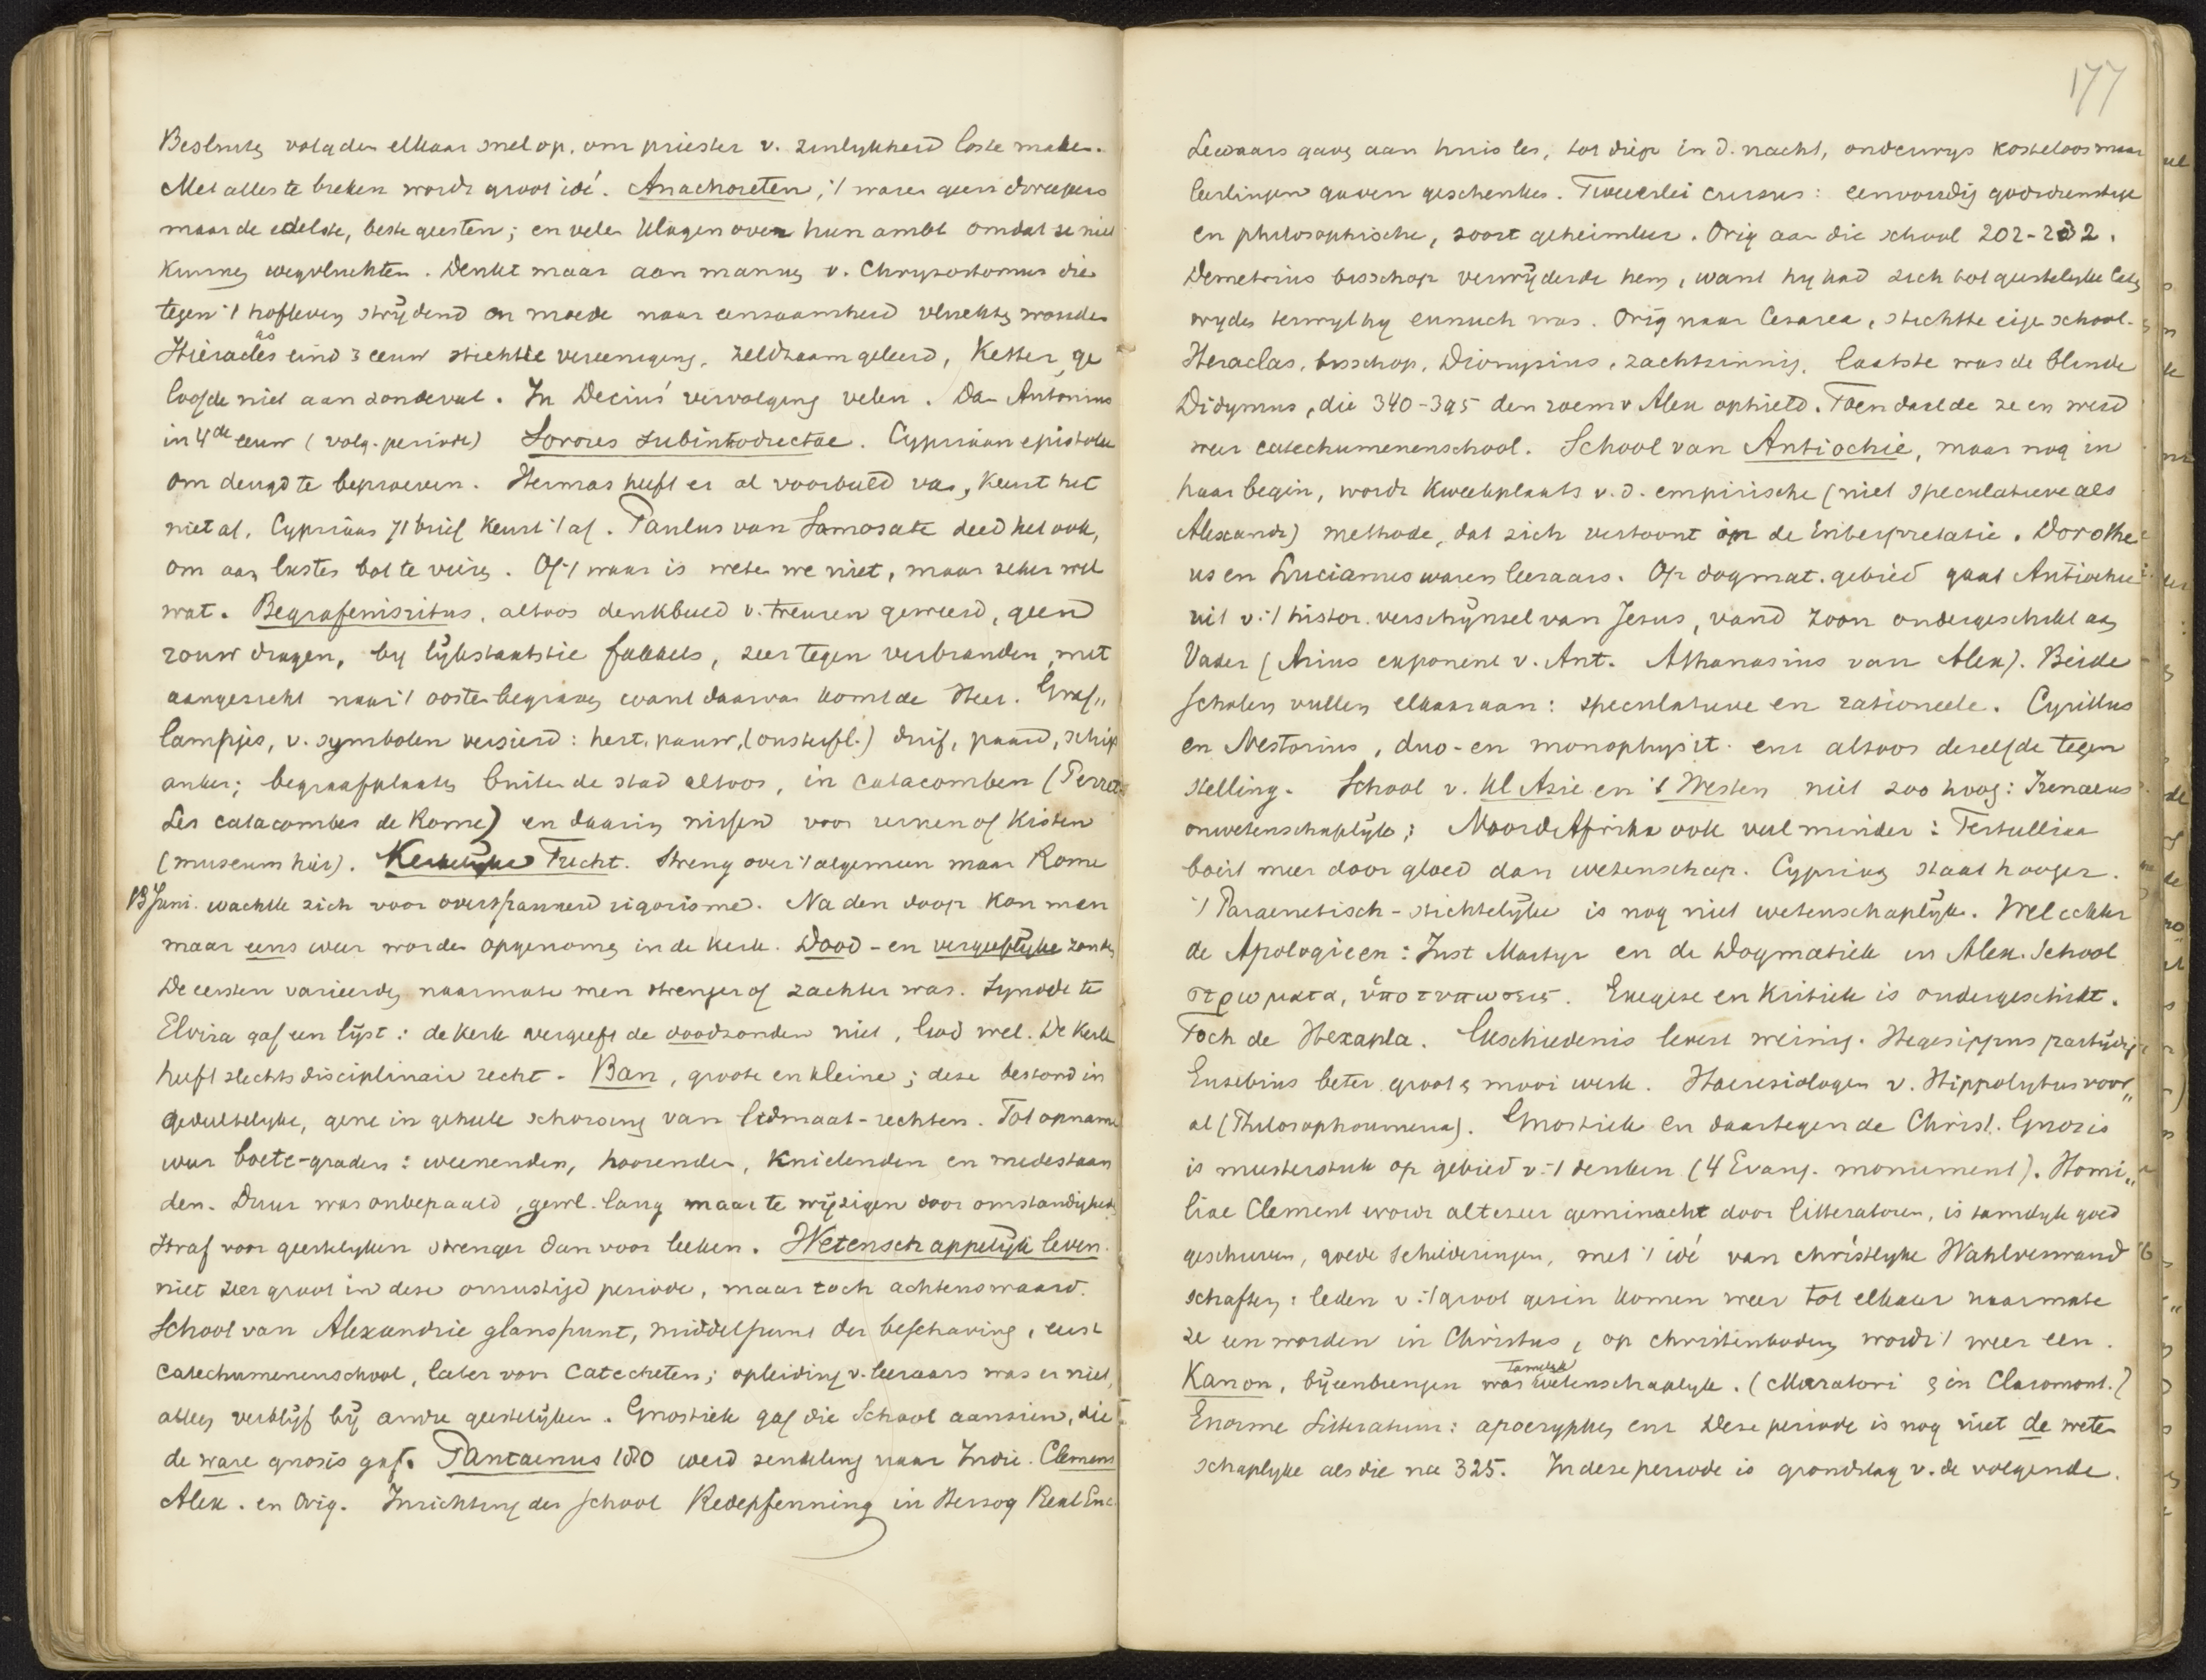 Besluiten volgden elkaar snel op, om priester v. zinlykheid los te maken.
Met alles te breken wordt groot idé. Anachoreten, 't waren geen dweepers
maar de edelste, beste geesten; en velen klagen over hun ambt omdat ze niet
kunnen wegvluchten. Denkt maar aan mannen v. Chrysostomus die
tegen 't hofleven strijdend en moede naar eenzaamheid vluchten wouden
Hieracas eind 3 eeuw stichtte vereeniging, zeldzaam geleerd, Ketter, ge
loofde niet aan zondeval. In Decius' vervolging velen. Dan Antonius
in 4de eeuw (volg. periode) Sorores subintroductae. Cypriaan epistolae
om deugd te beproeven. Hermas heeft er al voorbeeld van, keurt het
niet af. Cypriaan 71 brief keurt 't af. Paulus van Samosate deed het ook,
om aan lusten bot te vieren. Of 't waar is weten we niet, maar zeker wel
wat. Begrafenisritus, altoos denkbeeld v. treuren geweerd, geen
rouw dragen, by lijkstaatsie fakkels, zeer tegen verbranden, met
aangezicht naar 't oosten begraven want daarvan komt de Heer. Graf„
lampjes, v. symbolen versierd: hert, pauw, (onsterfl.) duif, paard, schip
anker; begraafplaats buiten de stad altoos, in catacomben (Perret
Les catacombes de Rome) en daarin nissen voor urnen of kisten
(museum hier). Kerkelyke Tucht. Streng over 't algemeen maar Rome
13 Juni. wachtte zich voor overspannend rigorisme. Na den doop kon men
maar eens weer worden opgenomen in de kerk. Dood- en vergeeflijke zonden
De eersten varieerden naarmate men strenger of zachter was. Synode te
Elvira gaf een lijst: de kerk vergeeft de doodzonden niet, God wel. De Kerk
heeft slechts disciplinair recht. Ban, groote en kleine; deze bestond in
gedeeltelyke, gene in geheele schorsing van lidmaat-rechten. Tot opname
weer boete-graden: weenenden, hoorenden, knielenden en medestaan
den. Duur was onbepaald, gewl. lang maar te wijzigen door omstandigheden
Straf voor geestelyken strenger dan voor leeken. Wetenschappelijk leven.
niet zeer groot in deze onrustige periode, maar toch achtenswaard.
School van Alexandrie glanspunt, middelpunt der beschaving, eerst
catechumenenschool, later voor catecheten; opleiding v. leeraars was er niet,
alleen verblijf bij andre geestelijken. Gnostiek gaf die School aanzien, die
de ware gnosis gaf. Pantaenus 180 werd zendeling naar Indie. Clemens
Alex. en Orig. Inrichting der School Redepfenning in Herzog Real Enc.
177
Leeraars gaven aan huis les, tot diep in d. nacht, onderwys kosteloos maar
leerlingen gaven geschenken. Tweeerlei cursus: eenvoudig godsdienstige
en philosophische, soort geheimleer. Orig aan die school 202-232.
Demetrius bisschop verwijderde hem, want hy had zich tot geestelyke laten
wyden terwyl hy eunuch was. Orig naar Cesarea, stichtte eigen school.
Heraclas, bisschop, Dionysius, zachtzinnig, laatste was de blinde
Didymus, die 340-395 den roem v Alex ophield. Toen daalde ze en werd
weer catechumenenschool. School van Antiochie, maar nog in
haar begin, wordt kweekplaats v. d. empirische (niet speculatieve als
Alexandr) methode, dat zich vertoont in de interpretatie. Dorothe
us en Lucianus waren leeraars. Op dogmat. gebied gaat Antiochie
uit v. 't histor. verschijnsel van Jesus, vand Zoon ondergeschikt aan
Vader (Arius exponent v. Ant. Athanasius van Alex). Beide
scholen vullen elkaar aan: speculatieve en rationeele. Cyrillus
en Nestorius, duo- en monophysit. enz altoos dezelfde tegen
stelling. School v. Kl Azie en 't Westen niet zoo hoog: Irenaeus
onwetenschaplijk; Noord Afrika ook veel minder: Tertulliaan
boeit meer door gloed dan wetenschap. Cyprian staat hooger.
't Paraenetisch-stichtelijke is nog niet wetenschaplijk. Wel echter
de Apologieen: Just Martyr en de Dogmatiek in Alex. School
στρωματα, ὑποτυπωσεις. Exegese en Kritiek is ondergeschikt.
Toch de Hexapla. Geschiedenis levert weinig. Hegesippus partijdig
Eusebius beter groot & mooi werk. Haeresiologen v. Hippolytus voor„
al (Philosophoumena). Gnostiek en daartegen de Christ. Gnosis
is meesterstuk op gebied v. 't denken (4 Evang. monument). Homi„
liae Clement wordt alteseer geminacht door litteratoren, is tamelyk goed
geschreven, goede schilderingen, met 't idé van christlyke Wahlverwand
schaften: leden v. 't groot gezin komen weer tot elkaar naarmate
ze een worden in Christus, op christenbodem wordt 't weer een.
Kanon, bijeenbrengen was tamelijk wetenschaplyk. (Muratori & in Claromont.)
Enorme Litteratuur: apocryphen enz Deze periode is nog niet de weten
schaplyke als die na 325. In deze periode is grondslag v. de volgende.